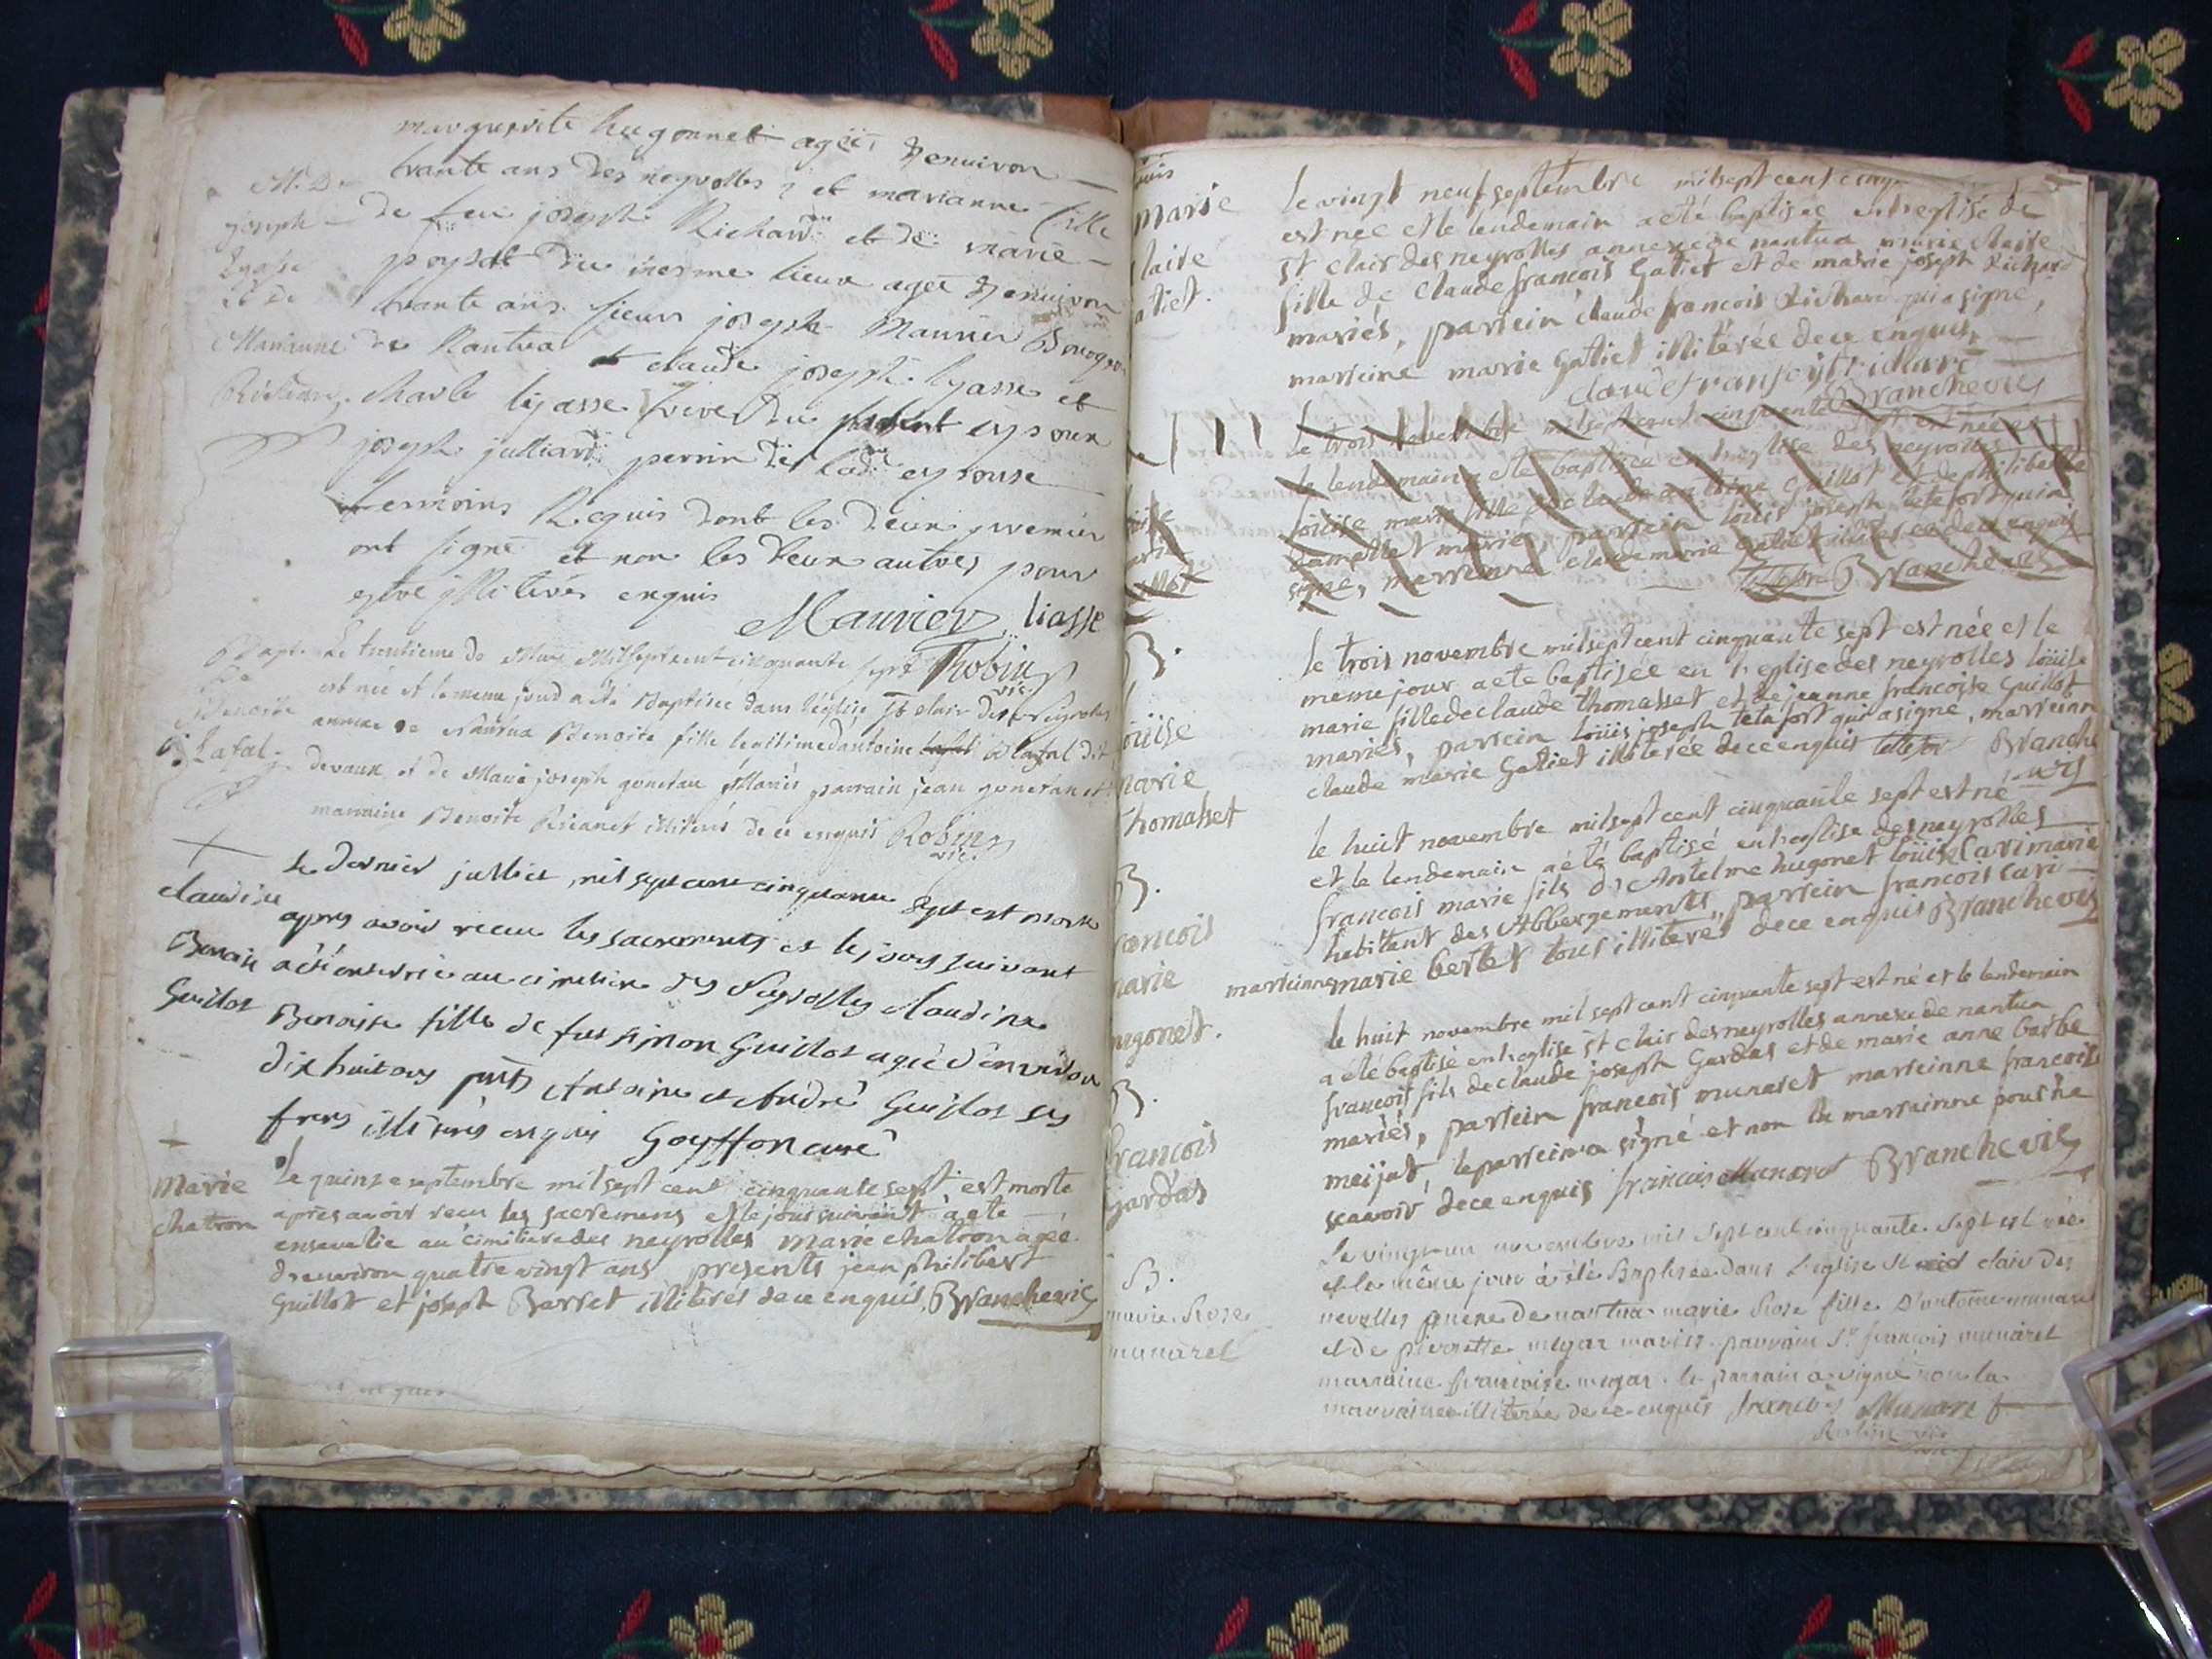 marguerite hugonnet agée d'environ
trante ans des neyrolles et marianne fille
de feu joseph Richard et de marie
du mesme lieux agée d'environ
trante ans sieur joseph Maurier Bourgeois
de Nantua et claude joseph lyasse et
charle lyasse du epoux
joseph julliard de epouse
temoins Requis dont les deux premier
ont signé et non les deux autres pour
estre illiterés enquis
Maurier liasse
Robin vic.
M. De
joseph
lyasse
Et de
Marianne
Richard
Bapt.
De
Benoite
Lafal
Le trentieme de May Milsept cent cinquante sept
est née et le meme jour a été Baptisée dans l'église St clair des Neyrolles
annexe de Nantua Benoite fille legitime d'antoine
devaux et de Marie joseph gonetan Mariés parrain jean gonetan et
marraine Benoite illiterés de ce enquis Robin
vic.
claudine
Benoise
Guillot
Le dernier juillet mil sept cent cinquante sept est morte
apres avoir receu les sacrements et le jour suivant
a été ensevelie au cimetiere des Neyrolles claudine
Benoise fille de feu simon Guillot agée d'environ
dix huit ans pnts Antoine et André Guillot ses
freres illiterés enquis Goyffon curé
Marie
chatron
Le quinze septembre mil sept cent cinquante sept est morte
apres avoir receu les sacremens et le jour suivant a ete
ensevelie au cimitiere des neyrolles marie chatron agée
d'environ quatre vingt ans presents jean philibert
Guillot et joseph Berret illiterés de ce enquis, Branche vic
marie
claire
gatiet.
le vingt neuf septembre mil sept cent cinq
est née et le lendemain a eté baptisée en l'eglise de
st clair des neyrolles annexe de nantua marie claire
fille de claude francois Gatiet et de marie joseph Richard
mariés, parrein claude francois Richard qui a signé,
marreine marie gatiet illiterée de ce enquis,
claude fransoys richard
Branche vic
Le trois novembre mil sept cent cinquante sept est née
le lendemain a ete baptisée en l'eglise des neyrolles
louise marie fille de claude antoine guillot et de philiberte
mariés, parrein louis joseph tetafort qui a
signé, marreinne claude marie gatiet illiterée de ce enquis
tettafor Branche vic
B.
louise
marie
Thomasset
Le trois novembre mil sept cent cinquante sept est née et le
meme jour a ete baptisée en l'eglise des neyrolles louise
marie fille de claude thomasset et de jeanne francoise Guillot
mariés, parrein louis joseph tetafort qui a signé, marreinne
claude marie Gatiet illiterée de ce enquis tettafor Branche
vic
B.
francois
marie
hugonet.
le huit novembre mil sept cent cinquante sept est né
et le lendemain a été baptisé en l'eglise des neyrolles
francois marie fils d'Antelme hugonet
habittant des Abbergements, parrein francois cari
marreinne marie berter tous illiterés de ce enquis Branche vic
B.
francois
Gardas
le huit novembre mil sept cent cinquante sept est né et le lendemain
a été baptisé en l'eglise st clair des neyrolles annexe de nantua
francois fils de claude joseph Gardas et de marie anne barbe
mariés, parrein francois munaret marreinne francoise
meijat, le parrein a signé et non la marreinne pour ne
scavoir de ce enquis francois Munaret Branche vic
B.
marie Rose
munaret
Le vingt un novembre mil sept cent cinquante sept est née
et le même jour a été Baptisée dans l'eglise St clair des
neyrolles annexe de nantua marie Rose fille d'antoine munaret
et de pierrette mejat mariés parrain Sr francois munaret
marraine francoise mejat le parrain a signé non la
marraine illiterée de ce enquis francois Munaret
Robin vic